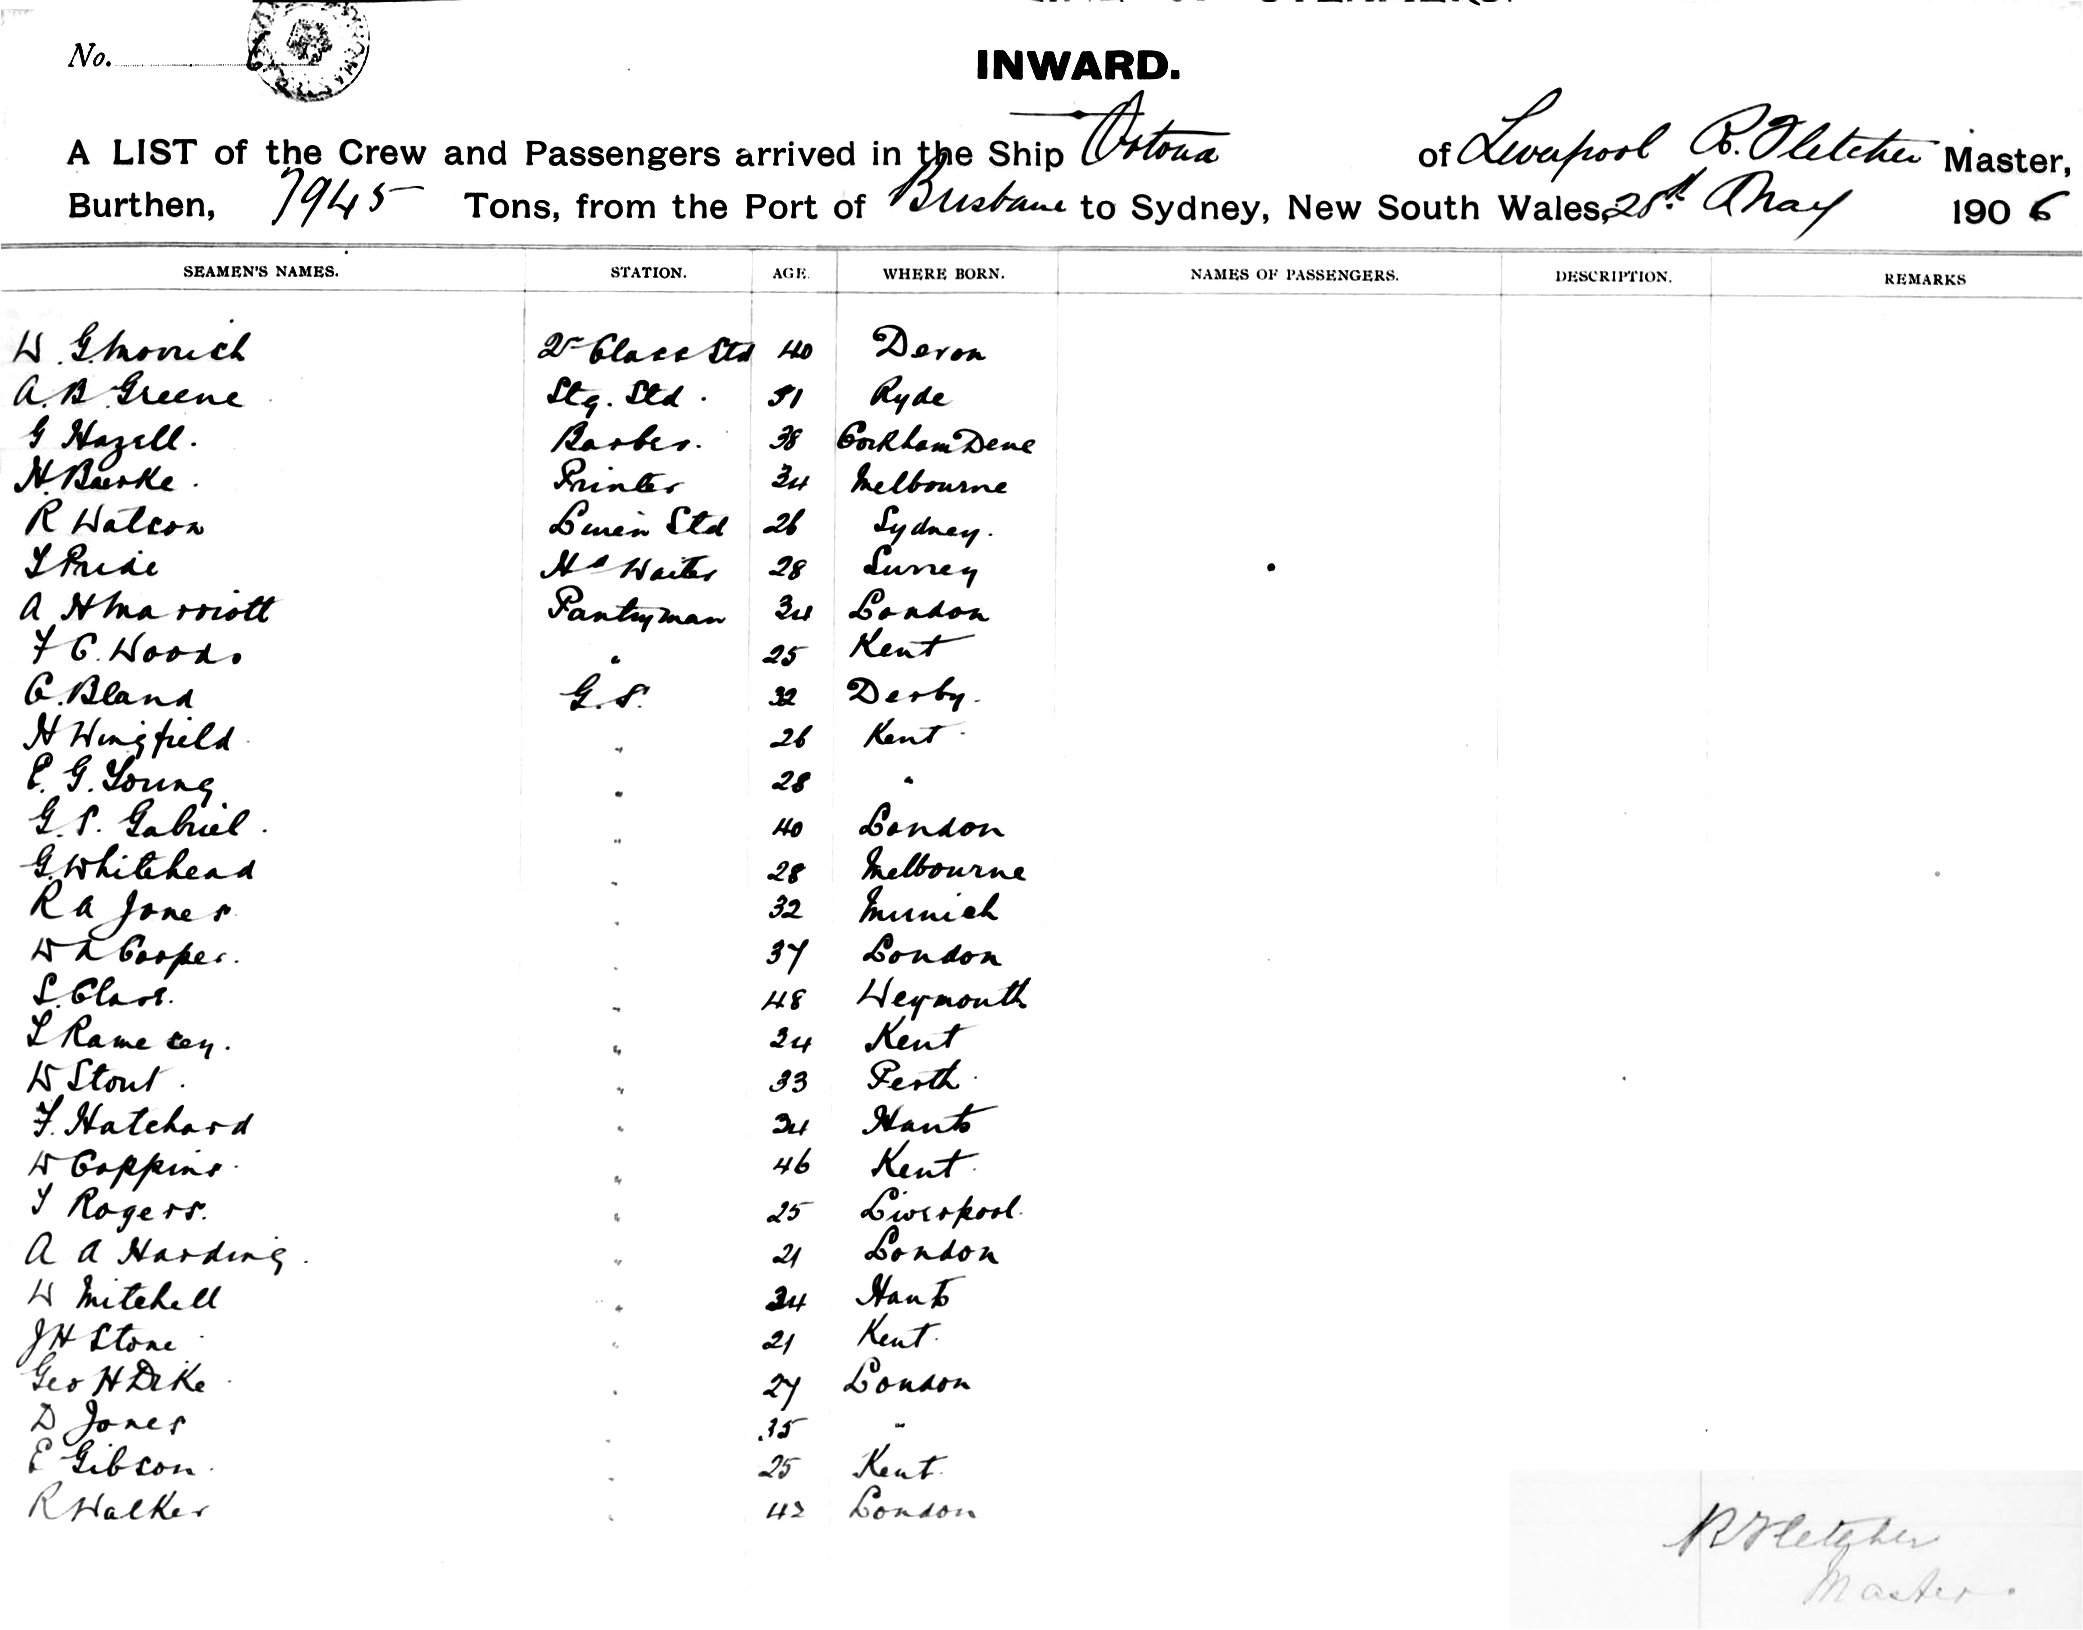 No. 6
INWARD.
A LIST of the Crew and Passengers arrived in the Ship Ortona of Liverpool R. Fletcher Master,
Burthen, 7945 Tons, from the Port of Brisbane to Sydney, New South Wales, 28th May 1906
SEAMEN'S NAMES. STATION. AGE. WHERE BORN. NAMES OF PASSENGERS. DESCRIPTION. REMARKS
W. G. Morrish 2nd Class Std 40 Devon
A. B. Greene Stg. Std. 51 Ryde
G Hazell. Barber. 38 Cockham Dene
H. Burke. Printer 34 Melbourne
R Watson Linen Std 26 Sydney.
T Pride Hd Waiter 28 Surrey
A H Marriott Pantryman 34 London
F C. Woods " 25 Kent
C. Bland G. S. 32 Derby.
H Wingfield " 26 Kent
E. G. Young " 28 "
G. S. Gabriel " 40 London
G. Whitehead " 28 Melbourne
R A Jones " 32 Munich
W A Cooper. " 37 London
S. Glass. " 48 Weymouth
T Ramesey. " 24 Kent
W Stout " 33 Perth
F. Hatchard " 34 Hants
W Coppins " 46 Kent
T Rogers. " 25 Liverpool.
A A Harding. " 21 London
W Mitchell " 34 Hants
J H Stone " 21 Kent
Geo H Dike " 27 London
D Jones " 35 "
E Gibson. " 25 Kent
R Walker " 42 London
R Fletcher
Master.